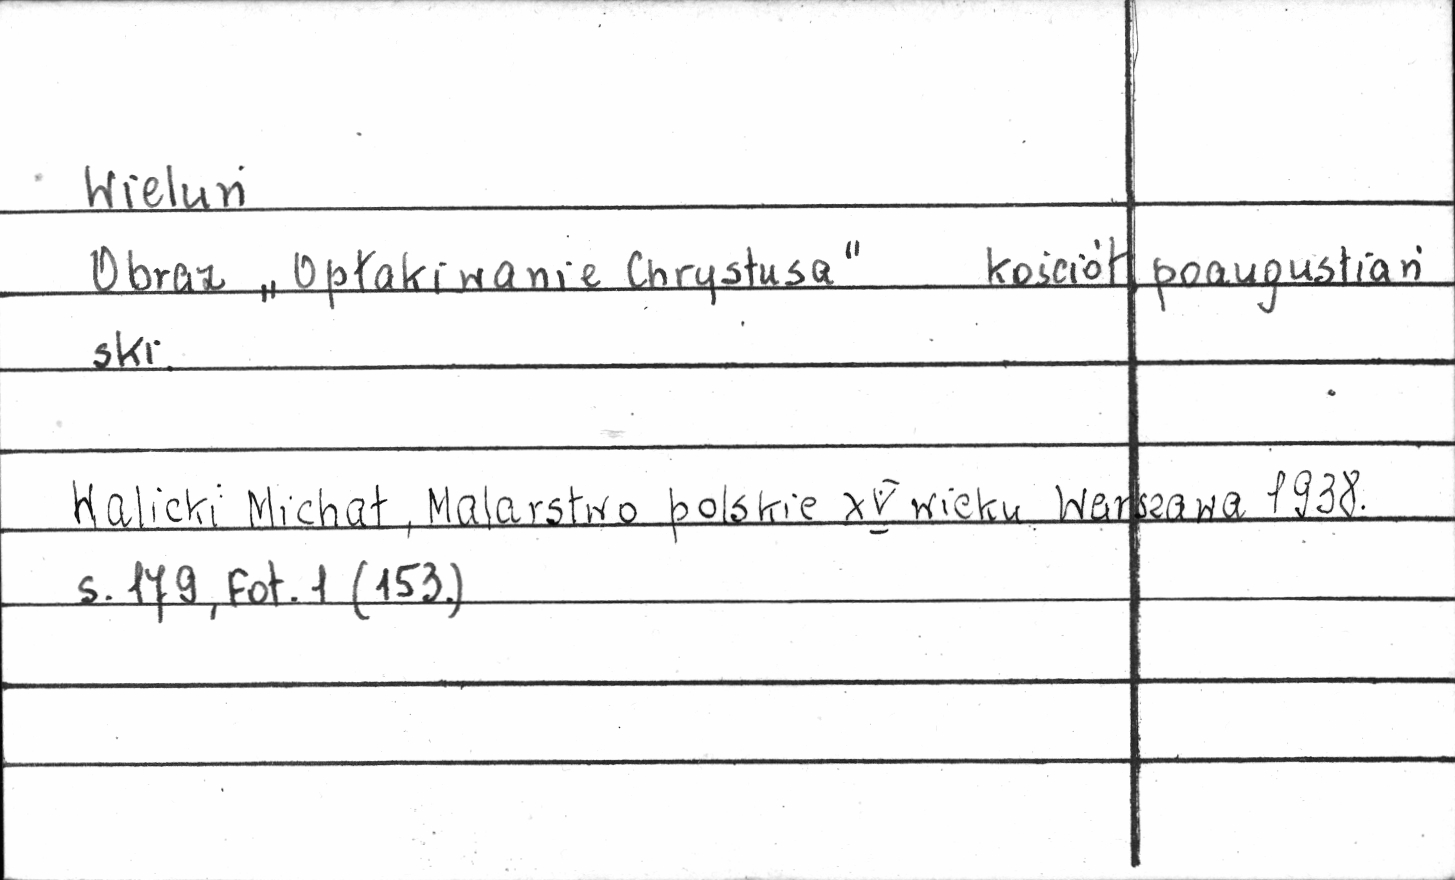 Wieluń
Obraz „Opłakiwanie Chrystusa" kościół poaugustiań
ski.
Walicki Michał, Malarstwo polskie XV wieku Warszawa 1938.
s. 179, Fot. 1 (153.)